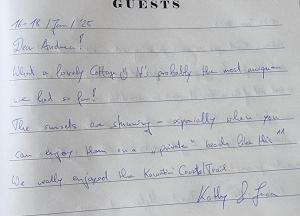 GUESTS
16-18 / Jan / '25
Dear Andrea!
What a lovely Cottage It's probably the most unique
we had so far!
The sunsets are stunning - especially when you
can enjoy them on a "private" beach like this ^^
We really enjoyed the Coastal Trail.
Kathy &